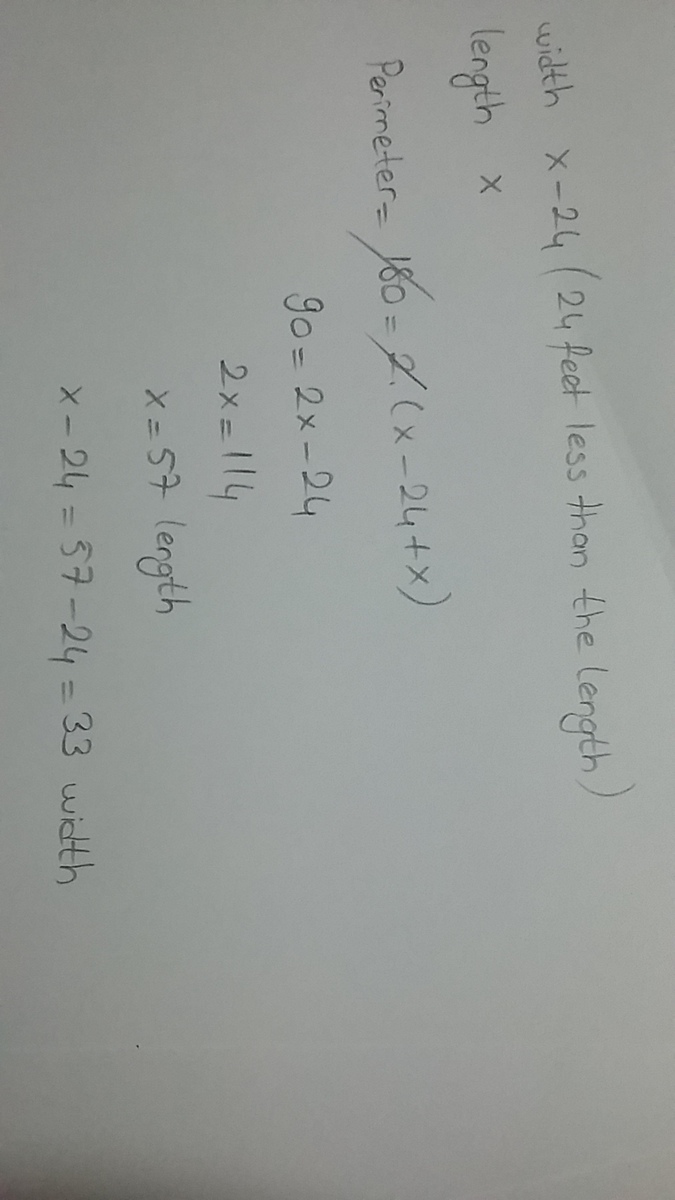 width x-24 (24 feet less than the length)
length x
Perimeter= 180 = 2.(x-24+x)
90 = 2x-24
2x=114
x=57 length
x-24=57-24=33 width